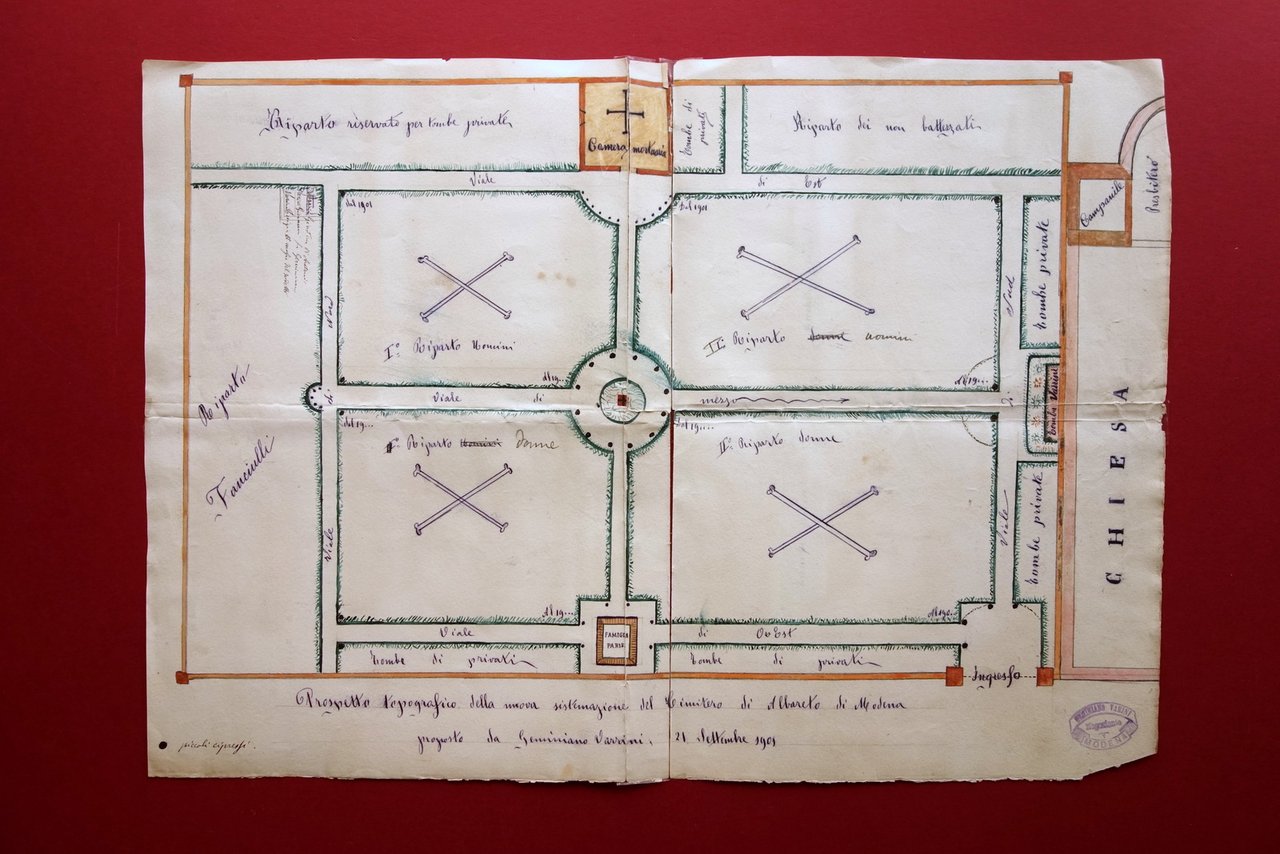 Riparto riservato per tombe private
Camera mortuaria
Tombe di
private
Riparto dei non battezzati
Campanile
Presbiterio
Viale di Est
Dal 1901
Dal 1901
Viale di Nord
Viale di Sud
Tombe private
I° Riparto Uomini
II° Riparto donne uomini
al 19...
al 19...
Viale di mezzo
Riparto
Fanciulli
Dal 19...
Dal 19...
I° Riparto Uomini Donne
II° Riparto donne
Tombe private
CHIESA
Al 19...
Al 190..
Viale di OvEst
FAMIGLIA
Tombe di privati
Tombe di privati
Ingresso
Prospetto topografico della nuova sistemazione del Cimitero di Albareto di Modena
proposto da Geminiano Varrini, 21 Settembre 1901
piccoli cipressi.
MODENA